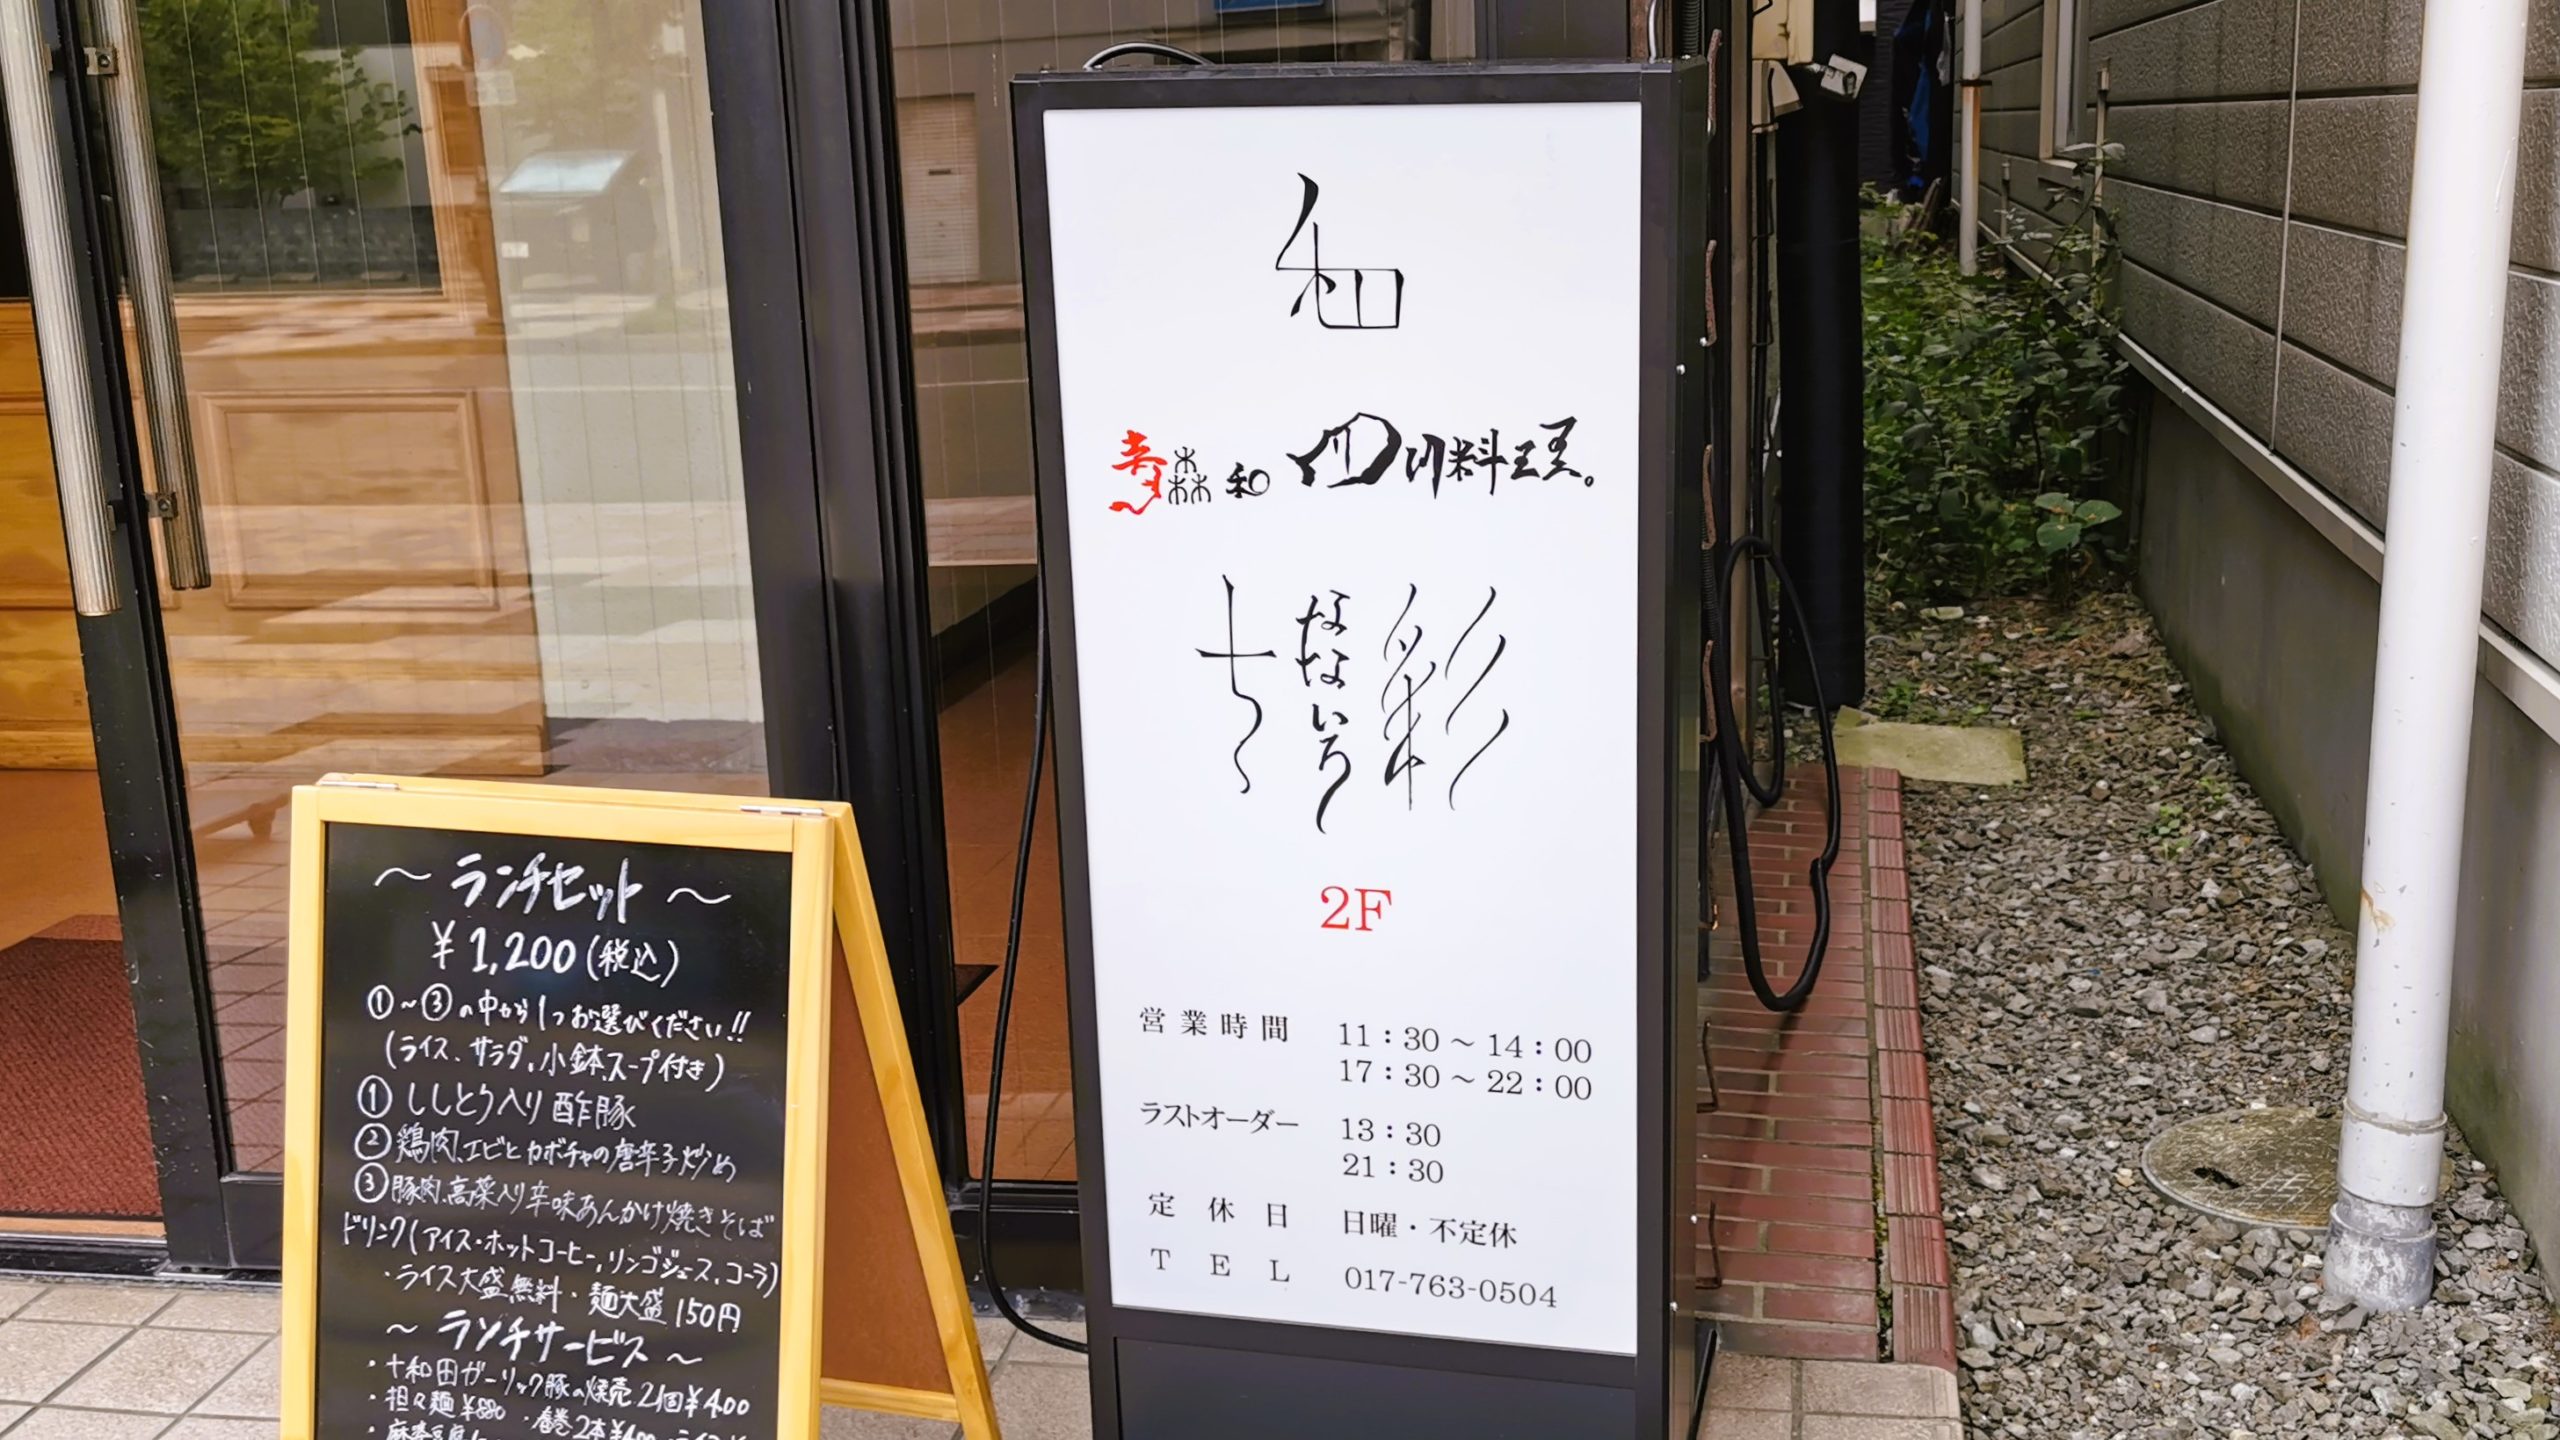 和
青森 和 四川料理。
七彩
なないろ
2F
営業時間 11：30～14：00
17：30～22：00
ラストオーダー 13：30
21：30
定休日 日曜・不定休
TEL 017-763-0504
～ランチセット～
¥1,200(税込)
①～③の中から1つお選びください!!
(ライス、サラダ、小鉢、スープ付き)
① ししとう入り酢豚
② 鶏肉、エビとカボチャの唐辛子炒め
③ 豚肉、高菜入り辛味あんかけ焼きそば
ドリンク(アイス・ホットコーヒー、リンゴジュース、コーラ)
・ライス大盛無料・麺大盛150円
～ランチサービス～
・十和田ガーリック豚の焼売2個¥400
・担々麺¥880 ・春巻2本¥400
・麻婆豆腐